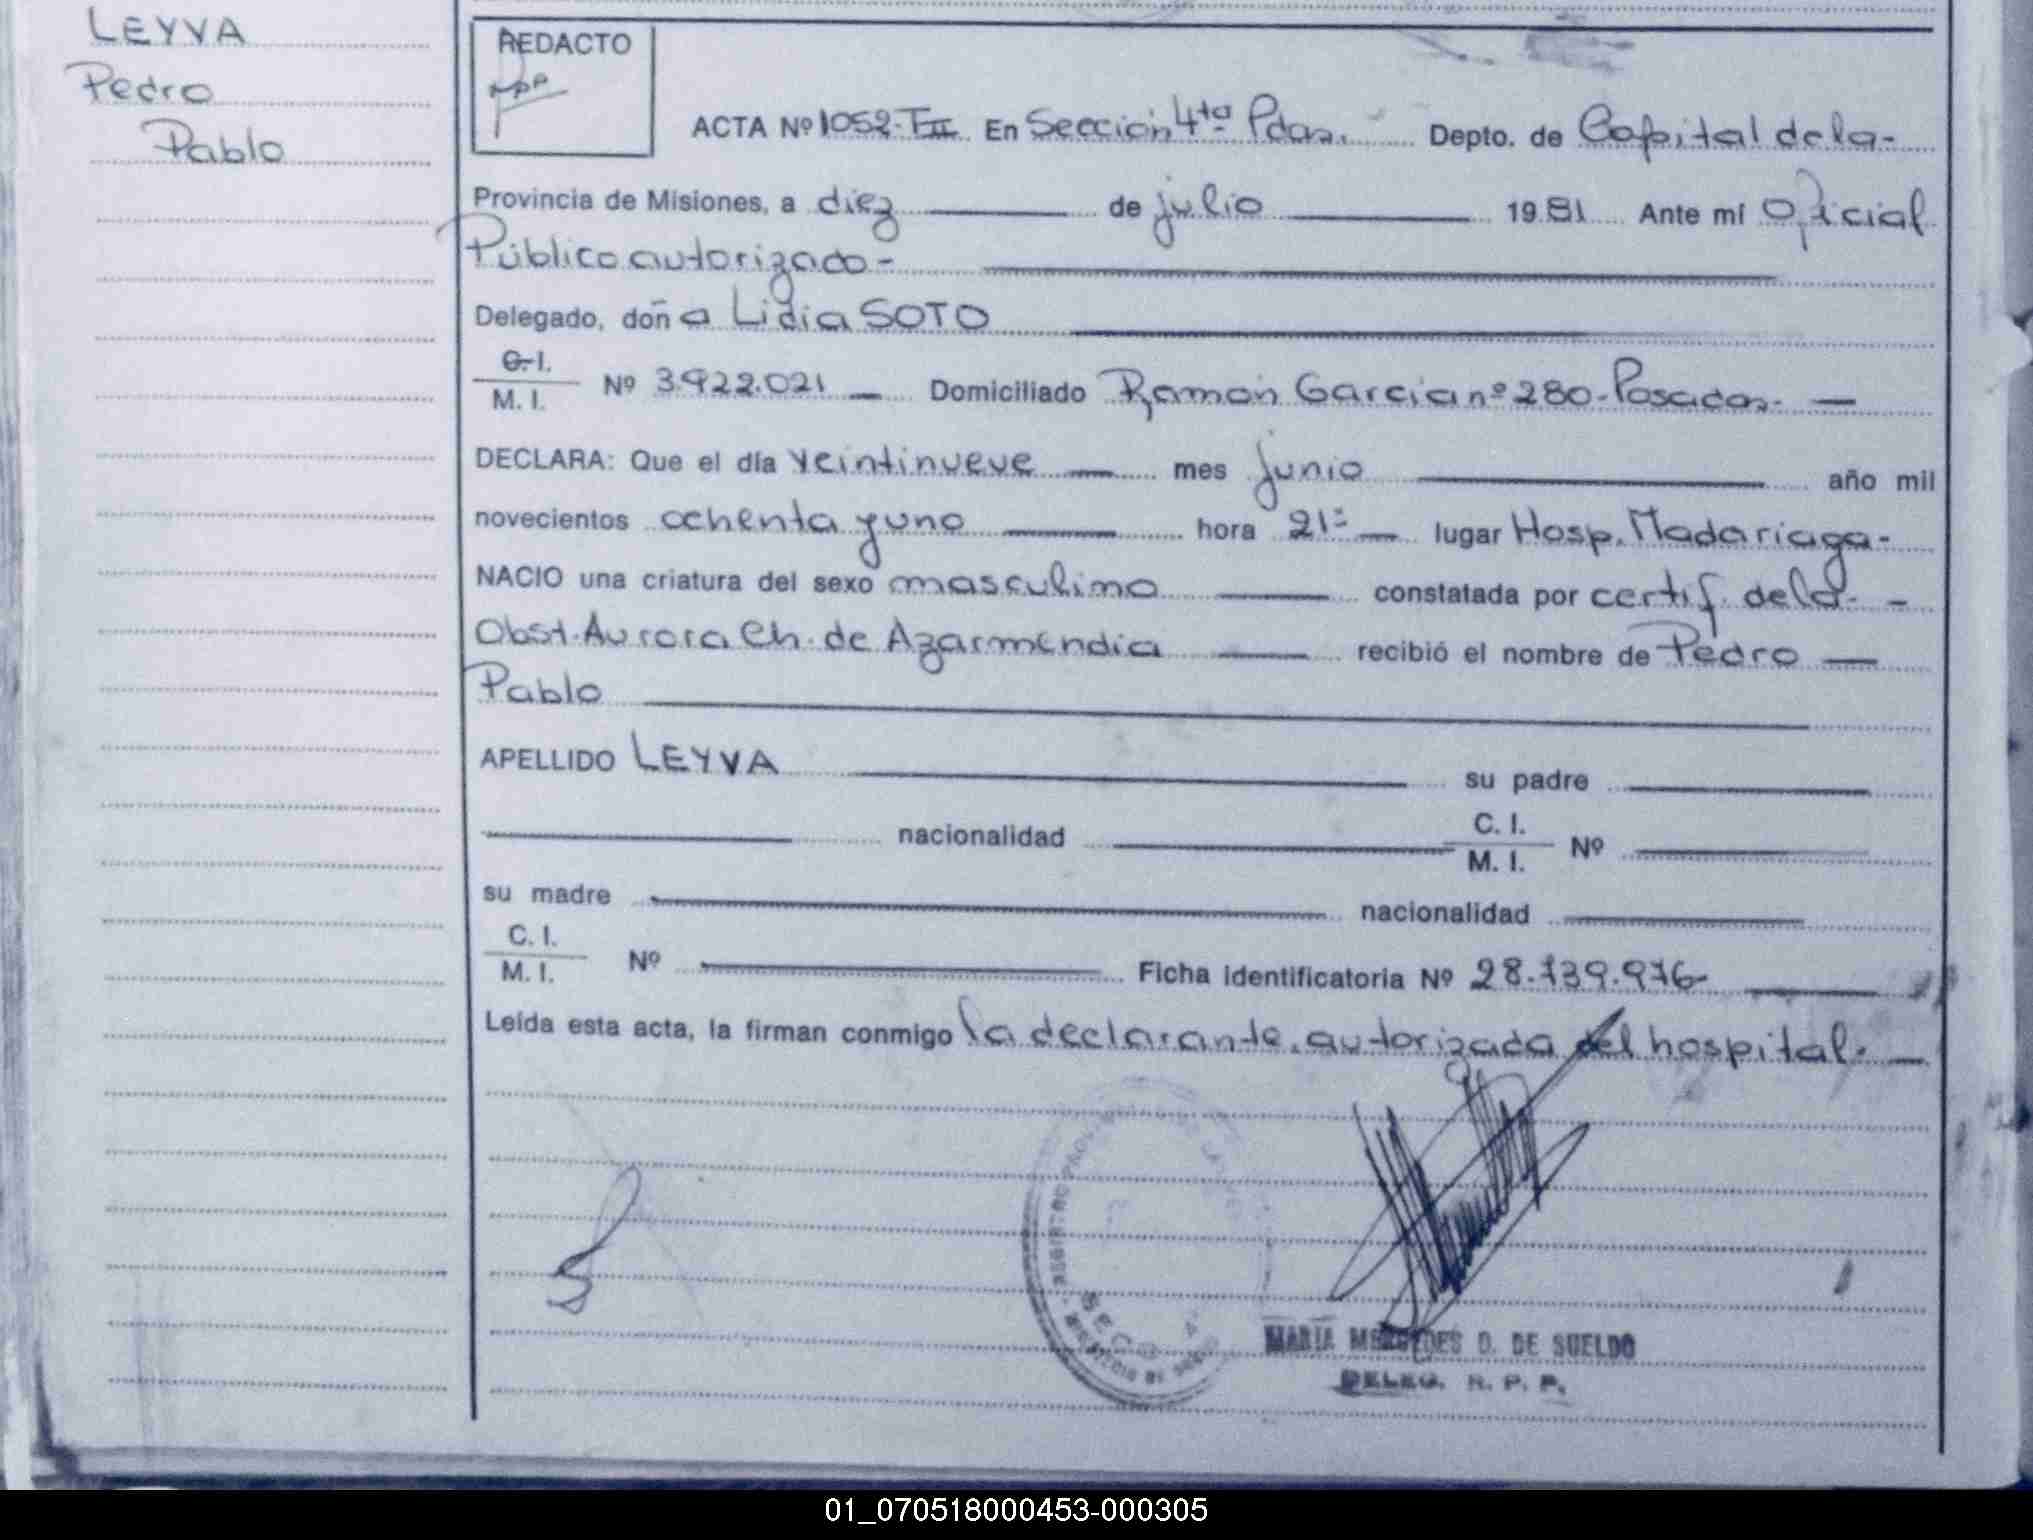 LEYVA
Pedro
Pablo
REDACTO
ACTA Nº 1052-TIII En Sección 4ta Pdas. Depto. de Capital de la-
Provincia de Misiones, a diez de julio 1981 Ante mí Oficial
Público autorizado-
Delegado, doña Lidia SOTO
C. I.
M. I. Nº 3.922.021 Domiciliado Ramón Garcia nº 280-Posadas-
DECLARA: Que el día veintinueve mes junio año mil
novecientos ochenta y uno hora 21:- lugar Hosp. Madariaga-
NACIO una criatura del sexo masculino constatada por certif. de la-
Obst. Aurora Ch. de Azarmendia recibió el nombre de Pedro
Pablo
APELLIDO LEYVA su padre
nacionalidad C. I.
M. I. Nº
su madre nacionalidad
C. I.
M. I. Nº Ficha identificatoria Nº 28.739.976
Leída esta acta, la firman conmigo la declarante autorizada del hospital.
MARIA MERCEDES D. DE SUELDO
DELEG. R. P. P.
01_070518000453-000305